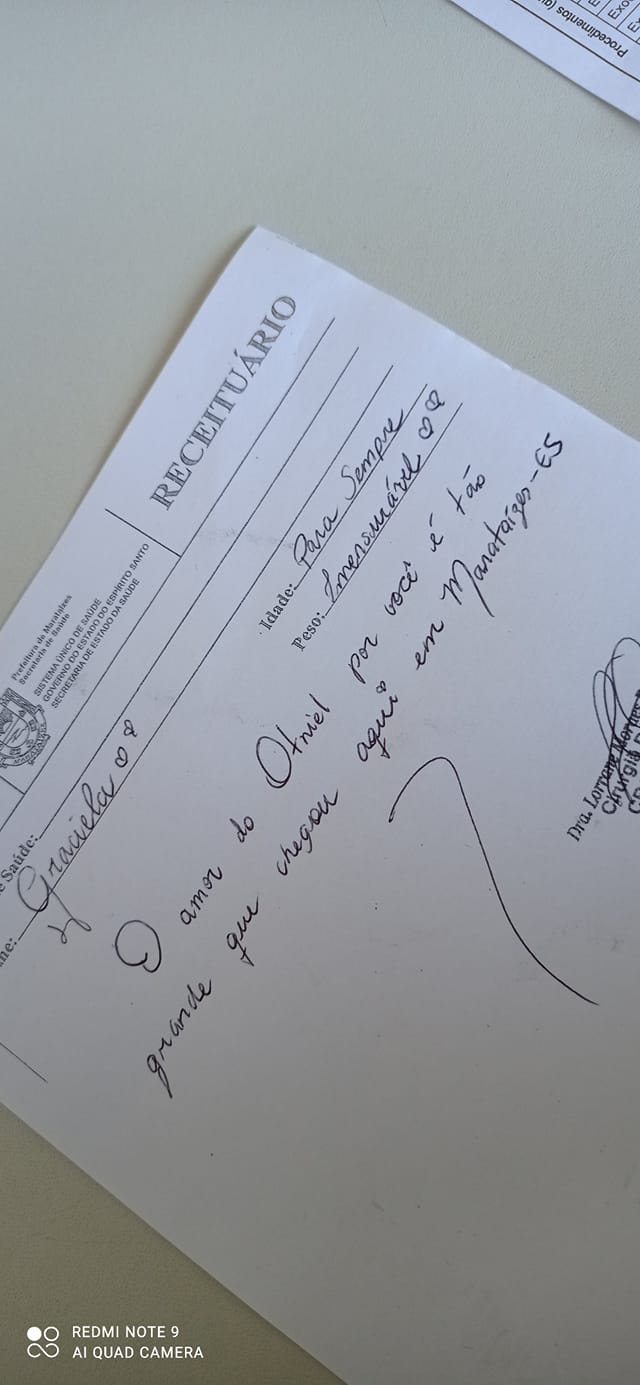 Procedimentos
Prefeitura de Marataízes
Secretaria de Saúde
SISTEMA ÚNICO DE SAÚDE
GOVERNO DO ESTADO DO ESPÍRITO SANTO
SECRETARIA DE ESTADO DA SAÚDE
RECEITUÁRIO
Saúde:
Graciela
Idade: Para Sempre
Peso: Imensurável
O amor do Otniel por você é tão
grande que chegou aqui em Marataízes-ES
Dra. Lorrane
Cirurgiã
REDMI NOTE 9
AI QUAD CAMERA